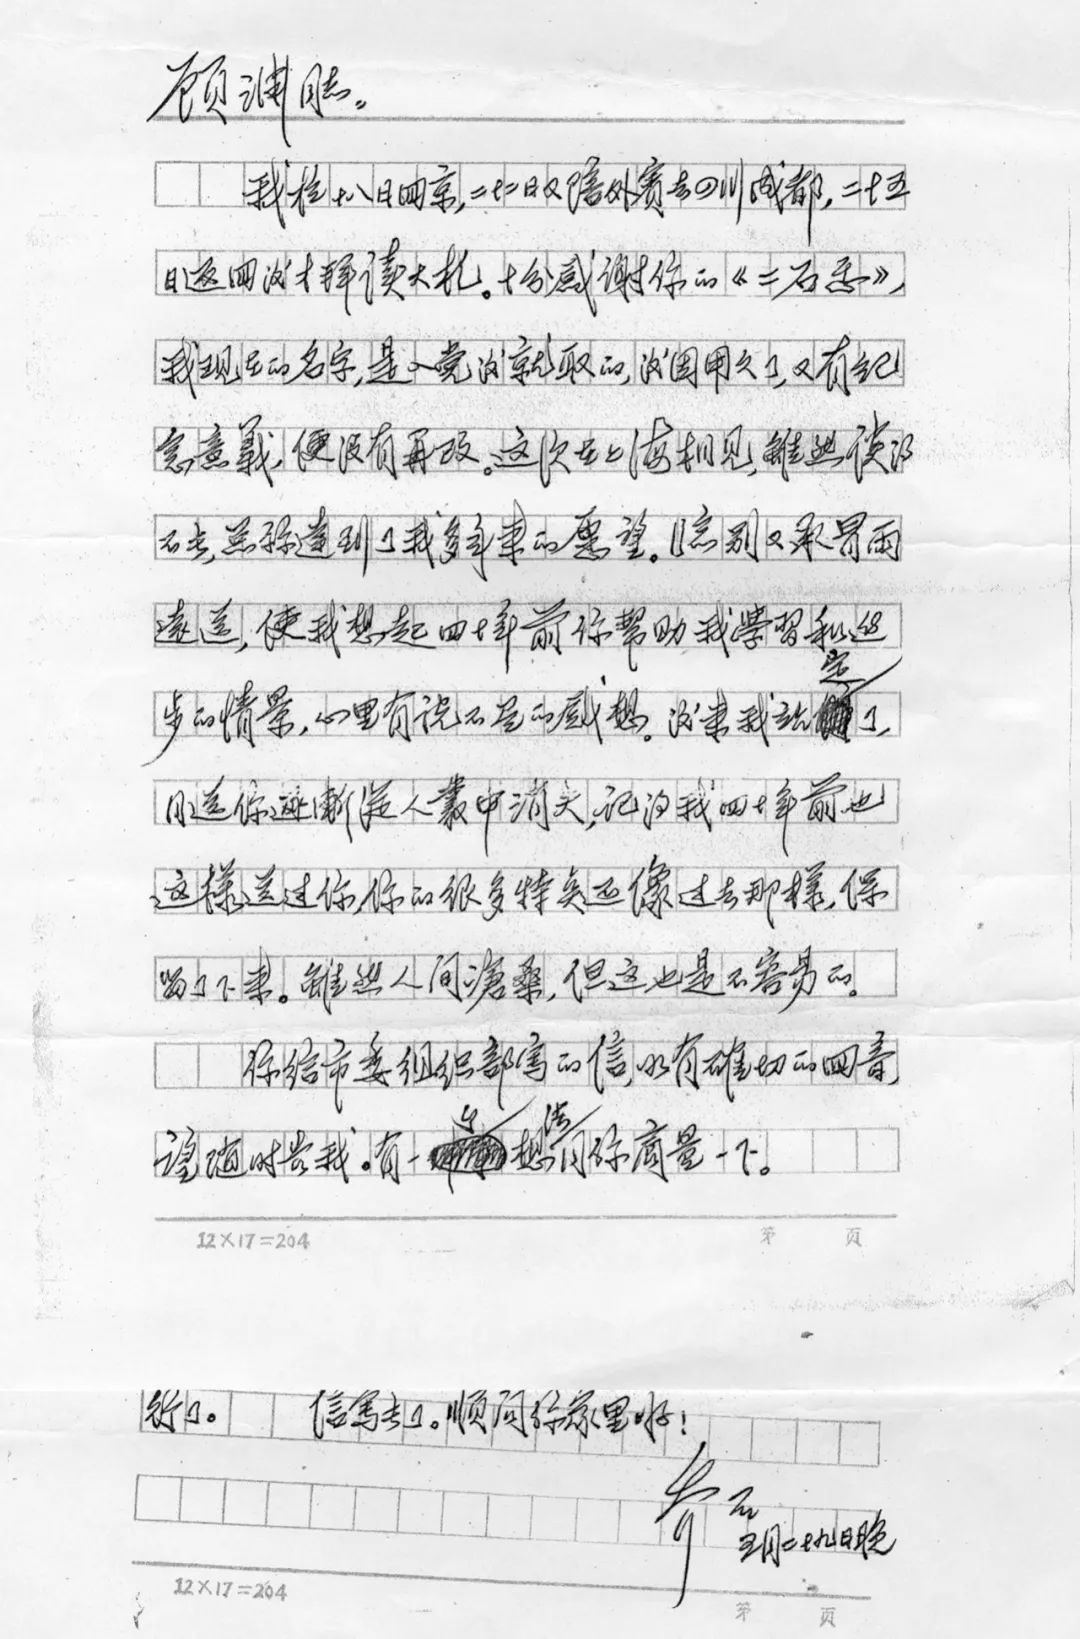 顾渊同志：
我于十八日回京，二十二日又陪外宾去四川成都，二十五
日返回后才拜读大札。十分感谢你的《二石忌》，
我现在的名字，是入党后就取的，后因用久了，又有纪
念意義，便没有再改。这次在上海相见，虽然谈得
不长，总称達到了我多年来的愿望。临别又承冒雨
遠送，使我想起四十年前你帮助我学習和進
步的情景，心里有说不尽的感想。后来我站定了，
目送你逐漸從人叢中消失，记得我四十年前也
这様送过你，你的很多特点还像过去那様，保
留了下来。虽然人间滄桑，但这也是不容易的。
你给市委组织部写的信，如有確切的回音，
望随时告我。有一些想法同你商量一下。
12×17=204
第 页
行了。 信写长了。顺问你家里好！
五月二十九日晚
12×17=204
第 页